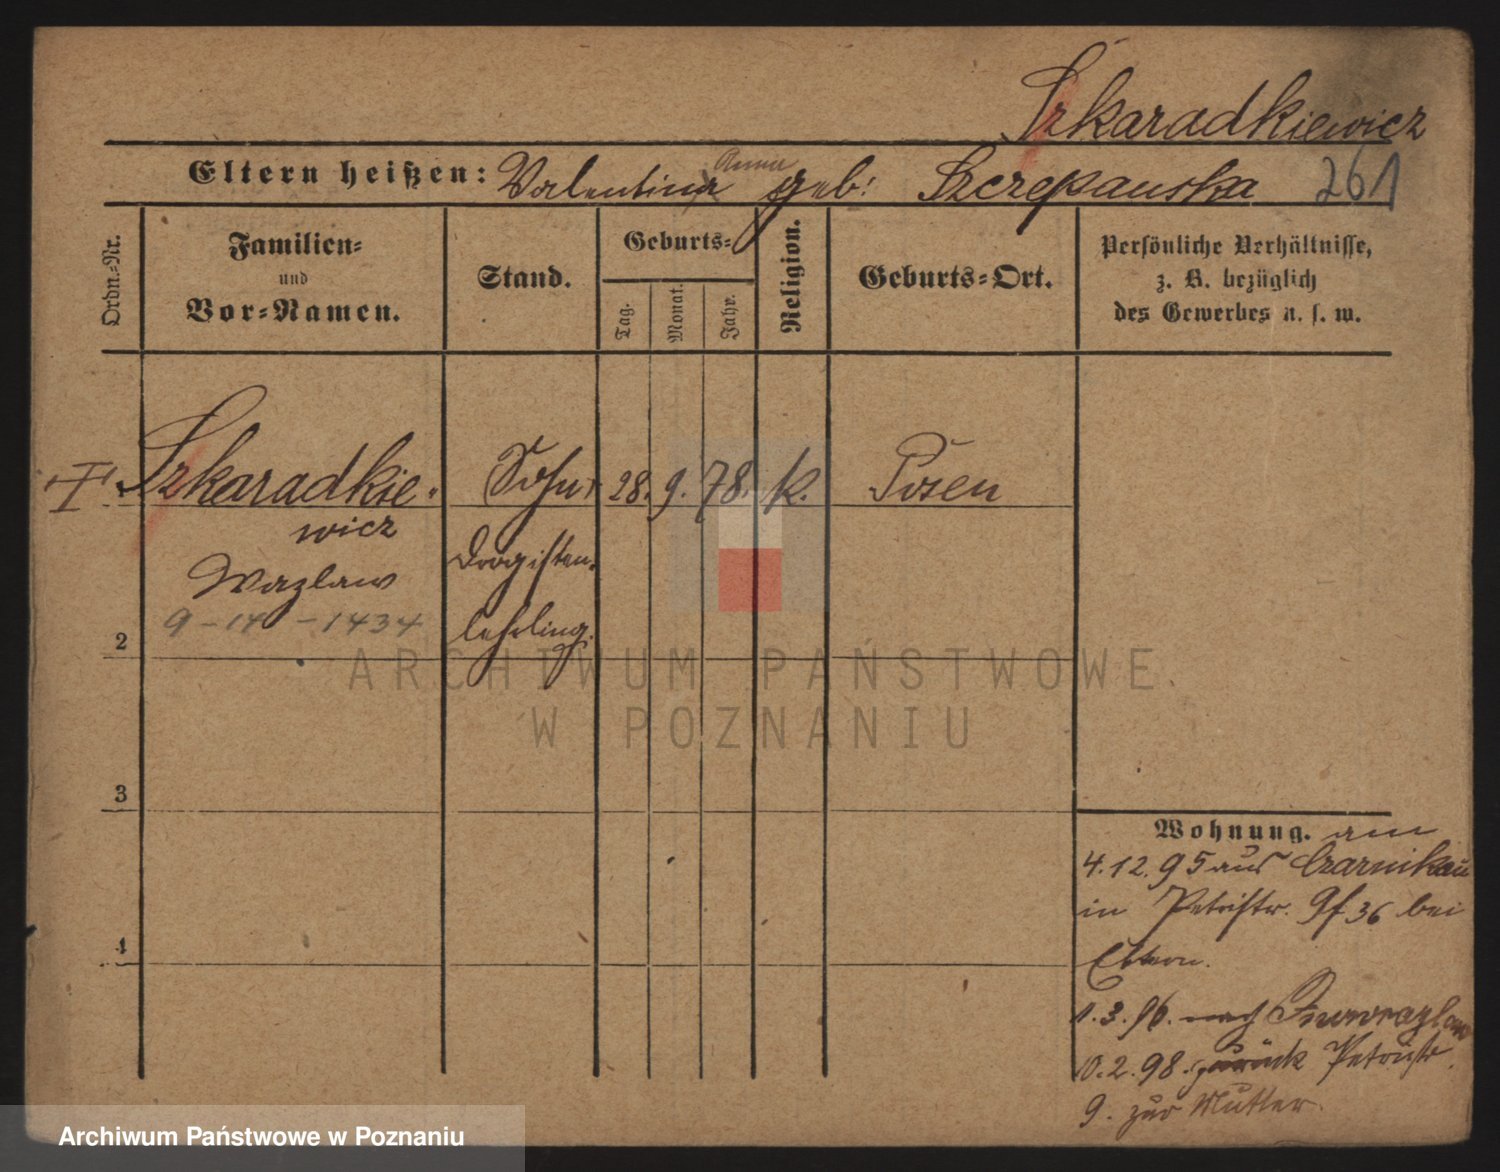 Szkaradkiewicz
Eltern heißen: Valentina Anna geb: Szczepanska 261
Ordn.-Nr.
Familien-
und
Vor-Namen.
Stand.
Geburts-
Tag.
Monat.
Jahr.
Religion.
Geburts-Ort.
Persönliche Verhältnisse,
z. B. bezüglich
des Gewerbes u. s. w.
Szkaradkie- Sohn 28. 9. 78. k. Posen
wicz
Wazlaw
Drogisten-
lehrling.
9-14 -1434
2
3
4
Wohnung. am
4.12.95 aus Czarnikau
in Petristr. 9 36 bei
Eltern.
1.3.96. nach Inowrazlaw
10.2.98. zurück Petristr.
9. zur Mutter.
ARCHIWUM PAŃSTWOWE
W POZNANIU
Archiwum Państwowe w Poznaniu